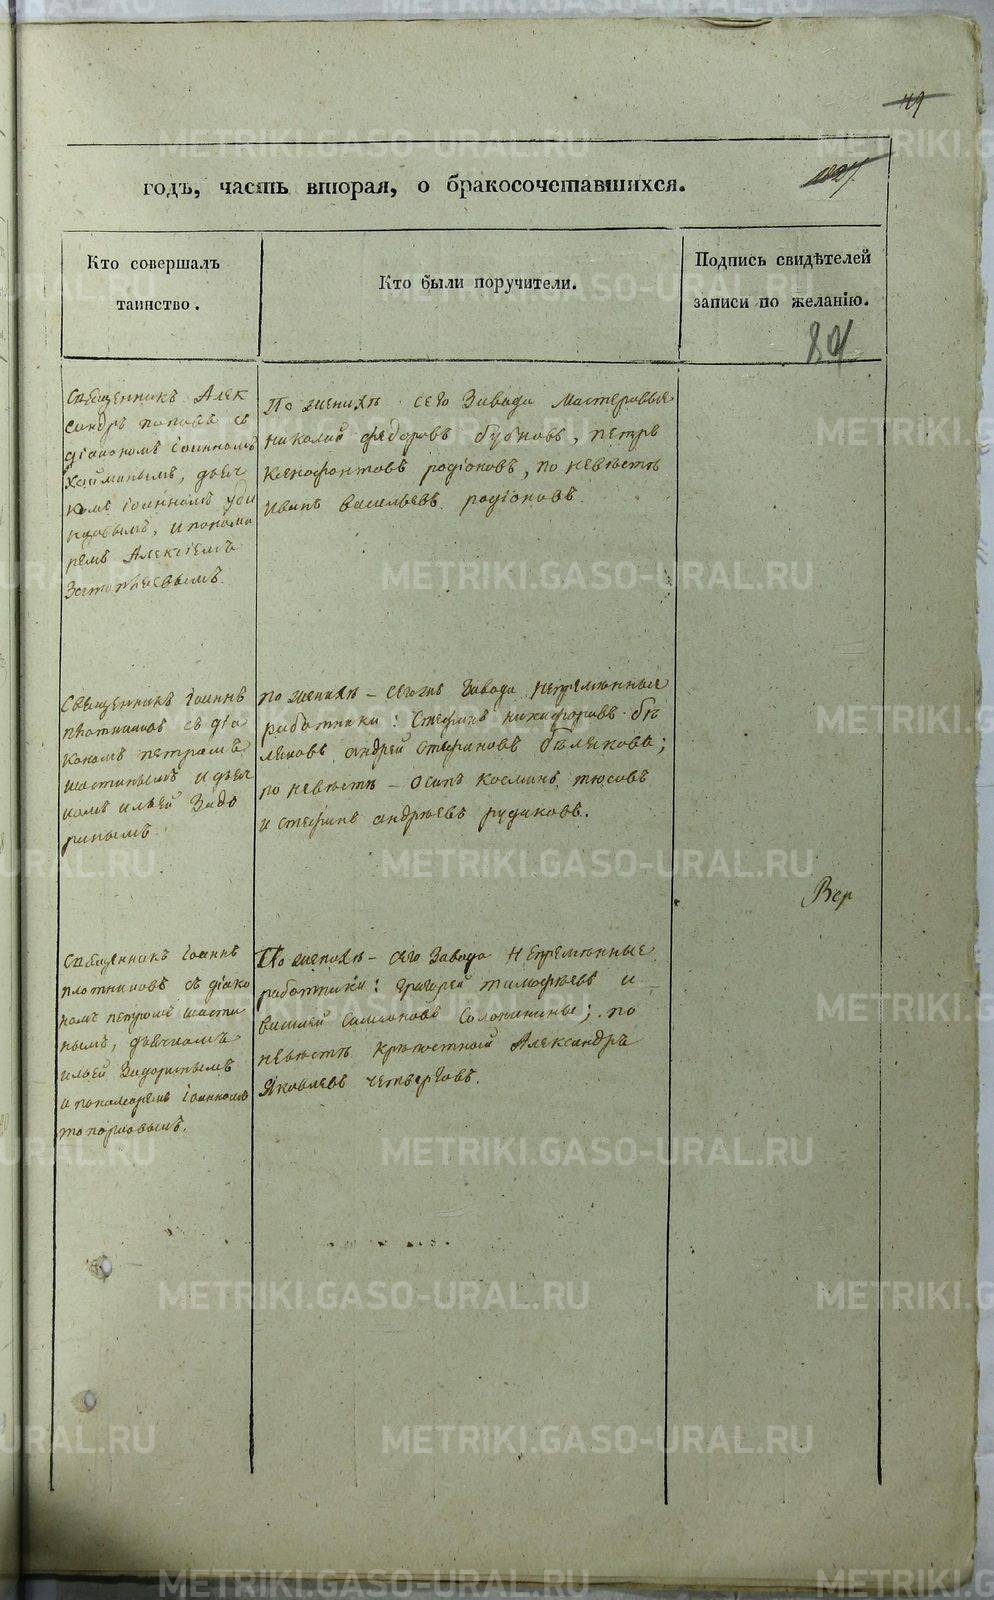 49
годъ, часть вторая, о бракосочетавшихся.
Кто совершалъ
таинство.
Кто были поручители.
Подпись свидѣтелей
записи по желанію.
89
Священникъ Алек
сандръ поповъ съ
діакономъ іоанномъ
дьяч
комъ іоанномъ
и понома
ремъ Алексіемъ
По женихѣ сего Завода Мастеровые
николай федоровъ бубновъ, петръ
Ксенофонтовъ родіоновъ, по невѣстѣ
иванъ васильевъ родіоновъ
Священникъ іоаннъ
плотниковъ съ діа
кономъ петромъ
шастинымъ и дьяч
комъ ильей Задо
ринымъ
по женихѣ – сегожъ Завода непремѣнные
работники: Стефанъ никифоровъ бѣ
ляковъ, андрей Стефановъ бѣляковъ;
по невѣстѣ – Осипъ косминъ тюсовъ
и стефанъ андреевъ рудаковъ.
Вер
Священникъ іоаннъ
плотниковъ съ діако
номъ петромъ шасти
нымъ, дьячкомъ
ильей Задоринымъ
и пономаремъ іоанномъ
топорковымъ.
По женихѣ – сего Завода непремѣнные
работники: григорей тимофѣевъ и
василей Симеоновъ Солонинины; по
невѣстѣ крѣпостный Александръ
Яковлевъ четверговъ.
METRIKI.GASO-URAL.RU